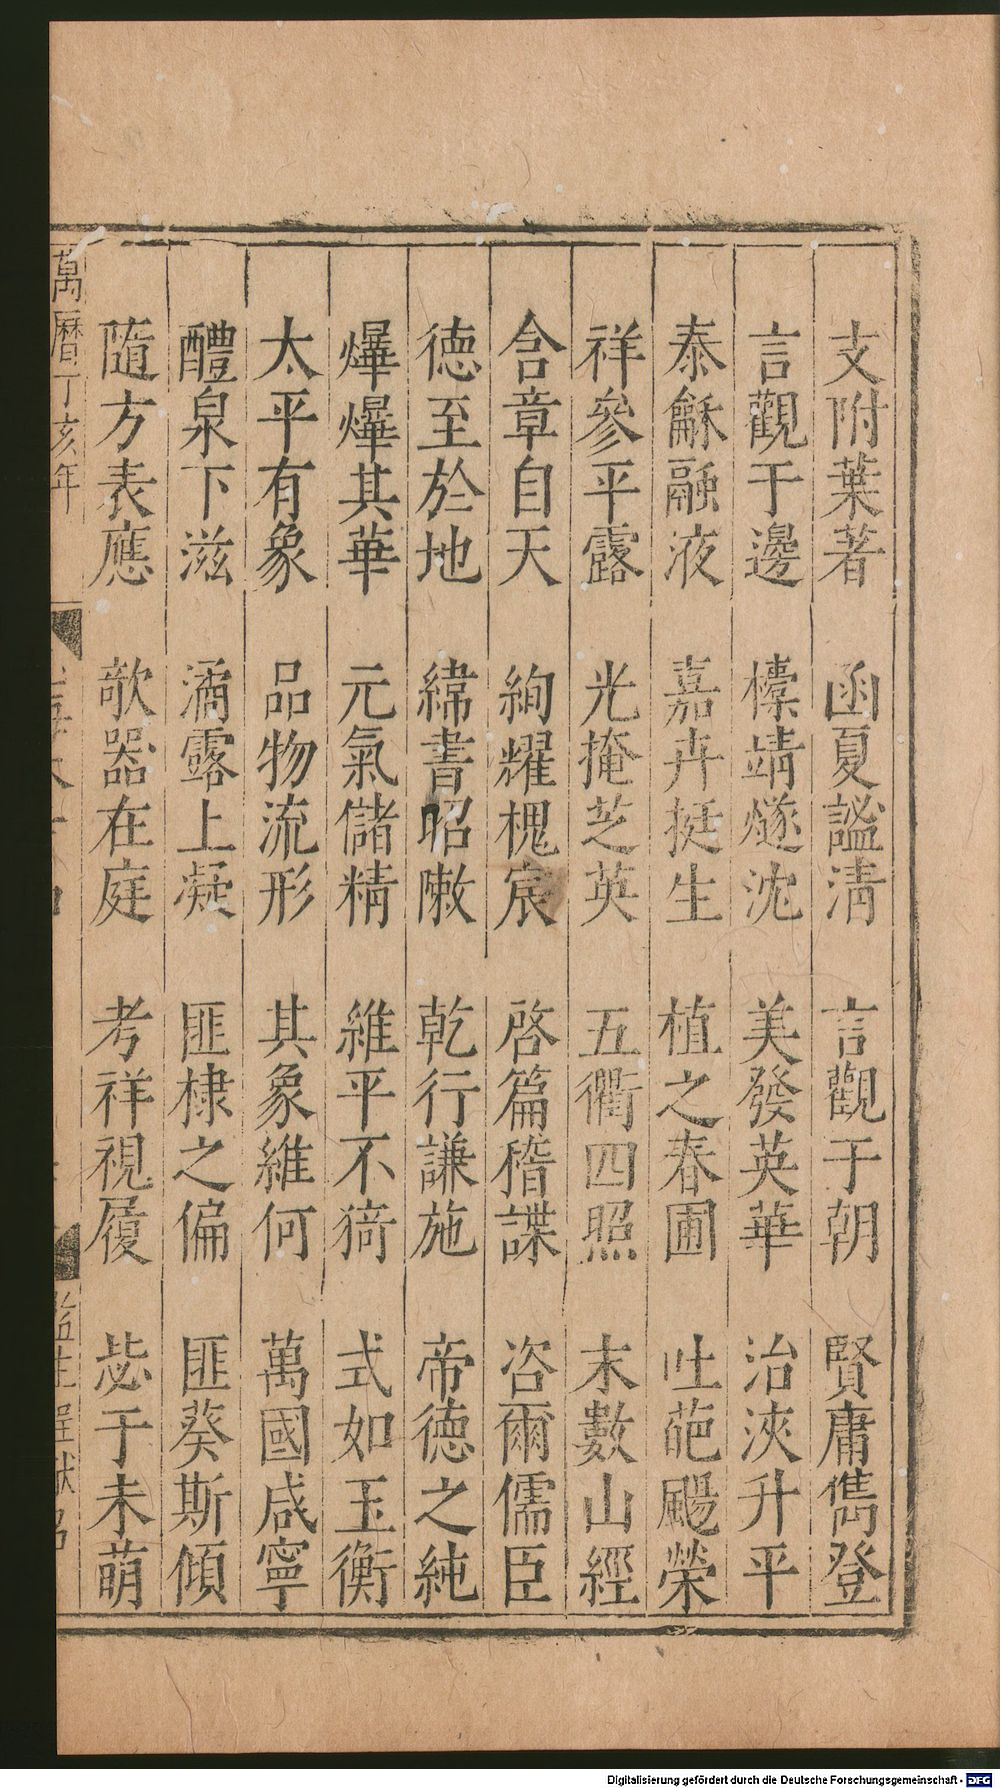 文附葉著 函夏謐淸 言觀于朝 賢庸雋登
言觀于邊 檺靖燧沈 美發英華 治浹升平
泰龢融液 嘉卉挺生 植之春圃 吐葩颺榮
祥參平露 光掩芝英 五衢四照 末數山經
含章自天 絢耀槐宸 啓篇稽諜 咨爾儒臣
德至於地 緯書昭敶 乾行謙施 帝德之純
爗爗其華 元氣儲精 維平不猗 式如玉衡
太平有象 品物流形 其象維何 萬國咸寧
醴泉下滋 潏露上凝 匪棣之偏 匪葵斯傾
隨方表應 欹器在庭 考祥視履 毖于未萌
萬曆丁亥年
監生